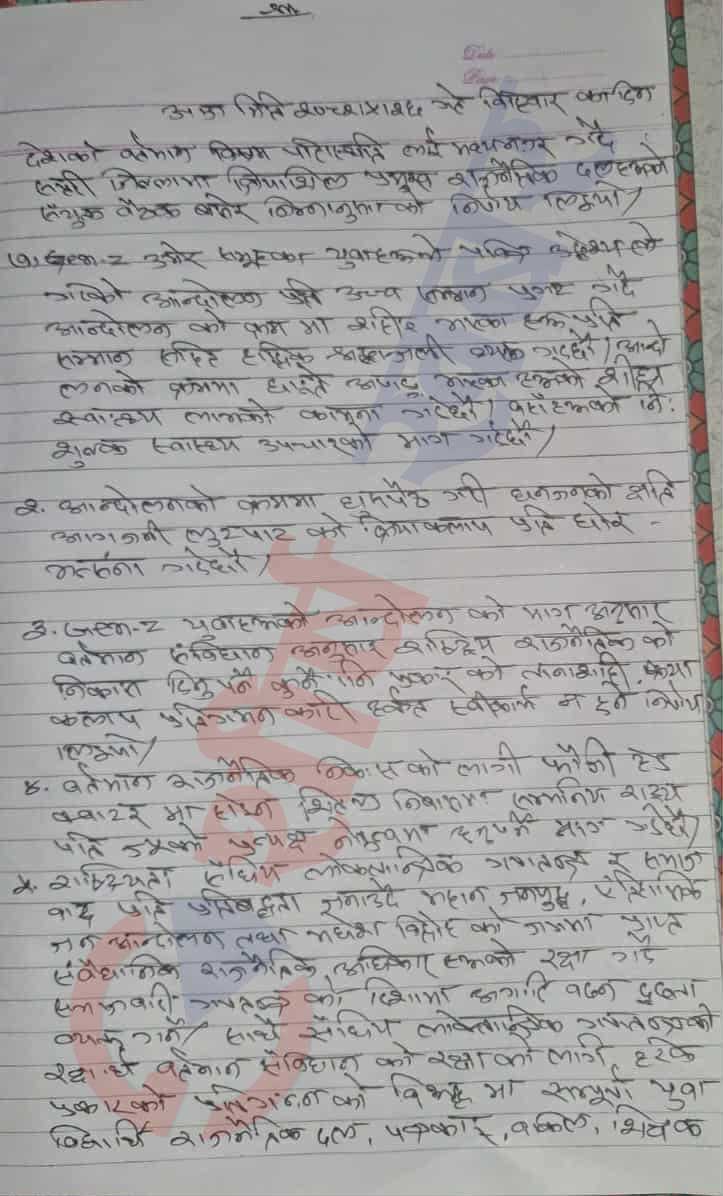 Date
Page
आज मिति २०८२।५।२६ गते विहिवार का दिन
देशको वर्तमान विषम परिस्थिति लाई मध्यनजर गर्दै
जिल्लामा क्रियाशिल प्रमुख राजनैतिक दलहरुको
संयुक्त बैठक बसेर निम्नानुसार को निर्णय लियौ/
१. Gen-Z उमेर समूहका युवाहरुले पवित्र उद्देश्य ले
गरेको आन्दोलन प्रति उच्च सम्मान प्रगट गर्दै
आन्दोलन को क्रम मा शहिद भएका हरु प्रति
सम्मान सहित हार्दिक श्रद्धाञ्जली व्यक्त गर्दछौ/ आन्दो
लनको क्रममा घाइते अपाङ्ग भएका हरुको शीघ्र
स्वास्थ्य लाभको कामना गर्दछौ/ वहाँहरुको नि:
शुल्क स्वास्थ्य उपचारको माग गर्दछौ/
२. आन्दोलनको क्रममा घुसपैठ गरी धनजनको क्षति
आगजनी लुटपाट को क्रियाकलाप प्रति घोर -
भर्त्सना गर्दछौ/
३. Gen-Z युवाहरुको आन्दोलन को माग अनुसार
वर्तमान संविधान अनुसार राष्ट्रिय राजनैतिक को
निकास दिनु पर्ने कुनै पनि प्रकार को तानाशाही क्रिया
कलाप प्रतिगमन कारी हर्कत स्वीकार्य न हुने निर्णय
लियौ/
४. वर्तमान राजनैतिक निकासको लागी फौजी हेड
क्वाटर मा होइन शितल निवासमा सम्मानिय राष्ट्र
पति ज्यूको प्रत्यक्ष नेतृत्वमा हुनुपर्ने माग गर्दछौ/
५. राष्ट्रियता संघिय लोकतान्त्रिक गणतन्त्र र समाज
वाद प्रति प्रतिबद्धता जनाउदै महान जनयुद्ध, ऐतिहासिक
जन आन्दोलन तथा मधेश विद्रोह को क्रममा प्राप्त
संवैधानिक राजनैतिक अधिकार हरुको रक्षा गर्दै
समाजवादी गणतन्त्र को दिशामा अगाडि बढ्न दृढता
व्यक्त गर्ने/ साथै संघिय लोकतान्त्रिक गणतन्त्रको
रक्षार्थ वर्तमान संविधान को रक्षा को लागी हरेक
प्रकारको प्रतिगमन को विरुद्ध मा सम्पूर्ण युवा
विद्यार्थि राजनैतिक दल, पत्रकार, वकिल, शिक्षक